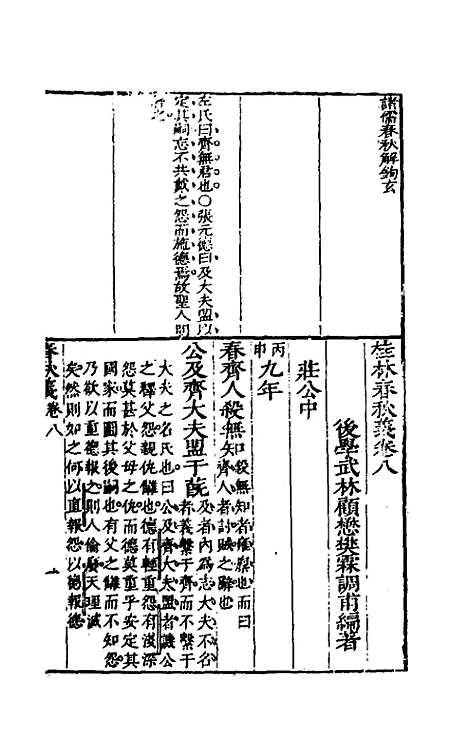 諸儒春秋解鉤玄
左氏曰齊無君也○張元德曰及大夫盟以
定其嗣忘不共戴之怨而施德焉故聖人明
桂林春秋義卷八
後學武林顧懋樊霖調甫編著
莊公中
丙申
九年
春齊人殺無知
殺無知者雍廩也而曰
齊人者討賊之辭也
公及齊大夫盟于蔇
及者內為志大夫不名
者義繫于齊而不繫于
大夫之名氏也曰公及齊大夫盟者譏公
之釋父怨親仇讎也德有輕重怨有淺深
怨莫甚於父母之仇而德莫重乎安定其
國家而圖其後嗣也有父之讎而不知怨
乃欲以重德報之則人倫廢天理滅
矣然則如之何以直報怨以德報德
春秋義卷八
一